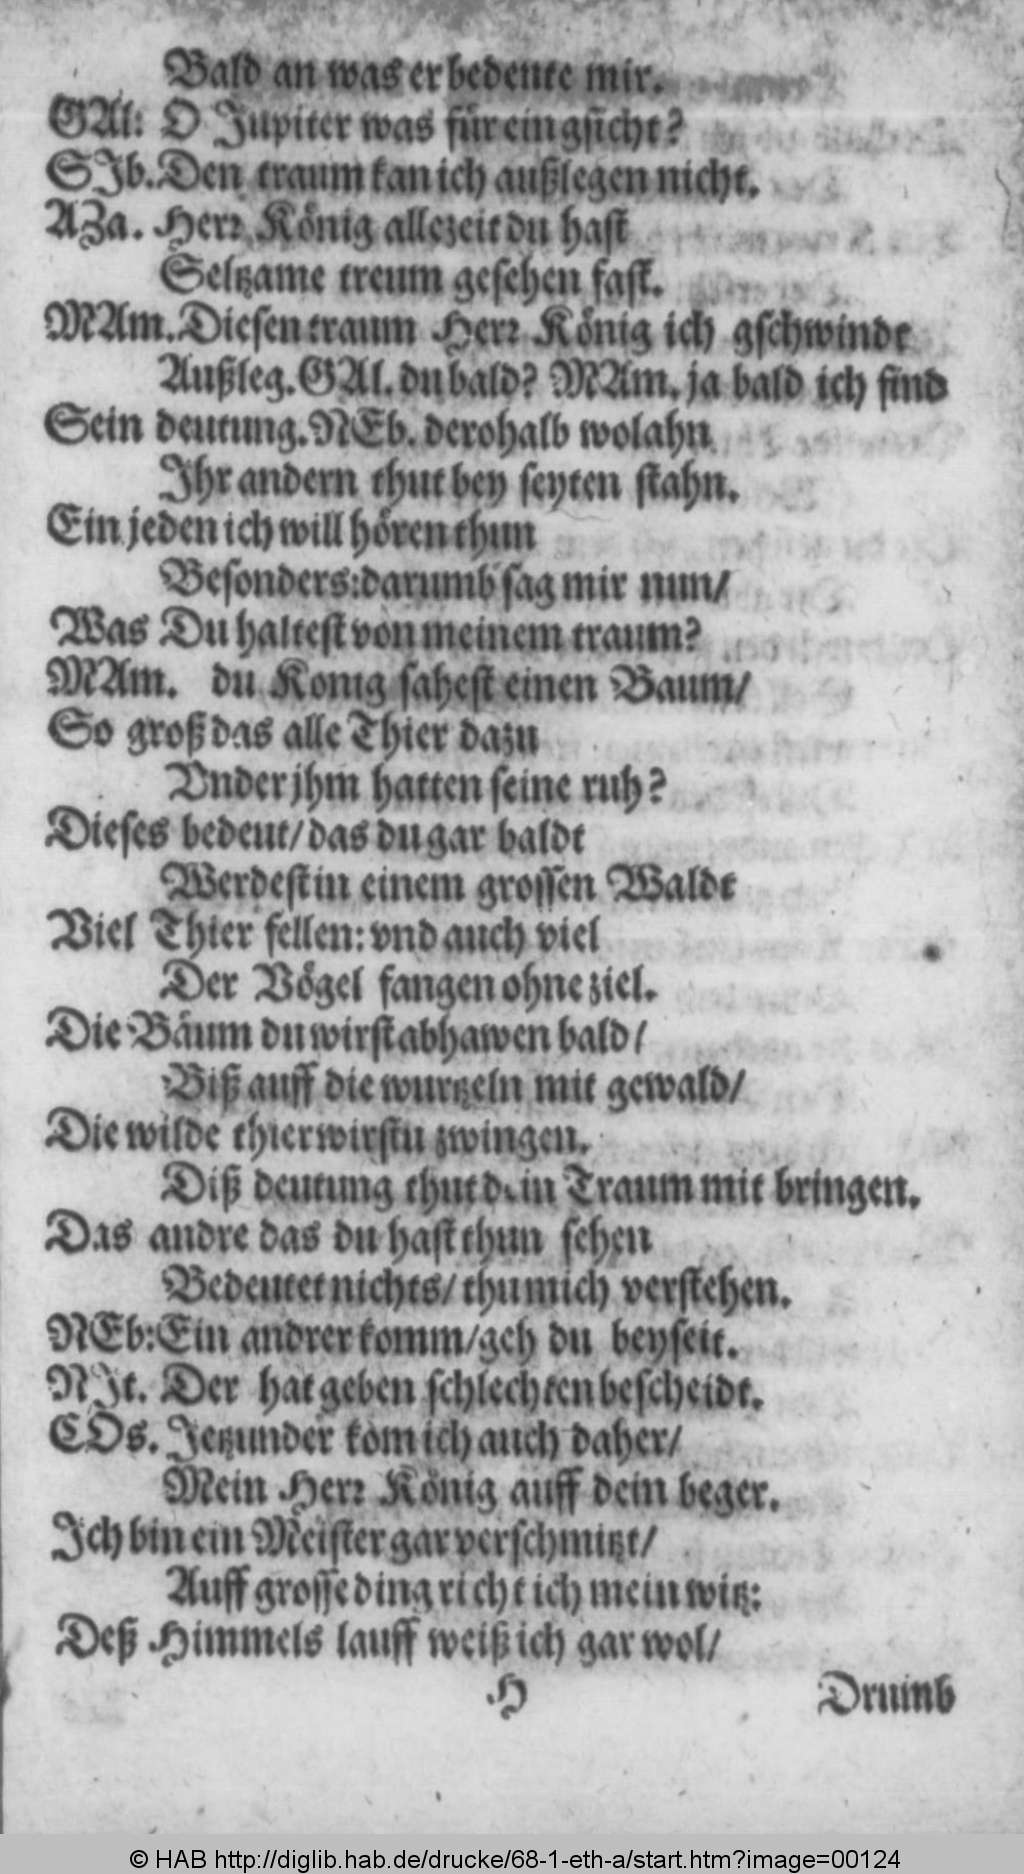 Bald an was er bedeute mir.
GAl: O Jupiter was für ein gsicht?
SJb. Den traum kan ich außlegen nicht.
AZa. Herr König allezeit du hast
Seltzame treum gesehen fast.
MAm. Diesen traum Herr König ich gschwindt
Außleg. GAl. du bald? MAm. ja bald ich find
Sein deutung. NEb. derohalb wolahn
Jhr andern thut bey seyten stahn.
Ein jeden ich will hören thun
Besonders: darumb sag mir nun/
Was Du haltest von meinem traum?
MAm. du Konig sahest einen Baum/
So groß das alle Thier dazu
Vnder jhm hatten seine ruh?
Dieses bedeut/ das du gar baldt
Werdest in einem grossen Waldt
Viel Thier fellen: vnd auch viel
Der Vögel fangen ohne ziel.
Die Bäum du wirst abhawen bald/
Biß auff die wurtzeln mit gewald/
Die wilde thier wirstu zwingen.
Diß deutung thut dein Traum mit bringen.
Das andre das du hast thun sehen
Bedeutet nichts/ thu mich verstehen.
NEb: Ein andrer komm/ geh du beyseit.
NJt. Der hat geben schlechten bescheidt.
COs. Jetzunder kom ich auch daher/
Mein Herr König auff dein beger.
Jch bin ein Meister gar verschmitzt/
Auff grosse ding richt ich mein witz:
Deß Himmels lauff weiß ich gar wol/
H Drumb
© HAB http://diglib.hab.de/drucke/68-1-eth-a/start.htm?image=00124